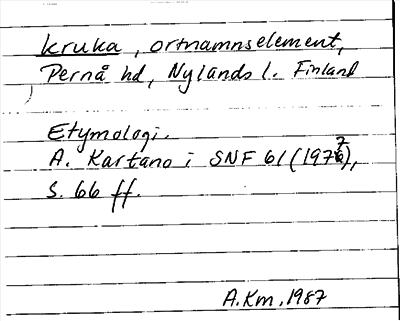 kruka, ortnamnselement,
Pernå hd, Nylands l. Finland
Etymologi.
A. Kartano i SNF 61 (1977),
s. 66 ff.
A.Km, 1987